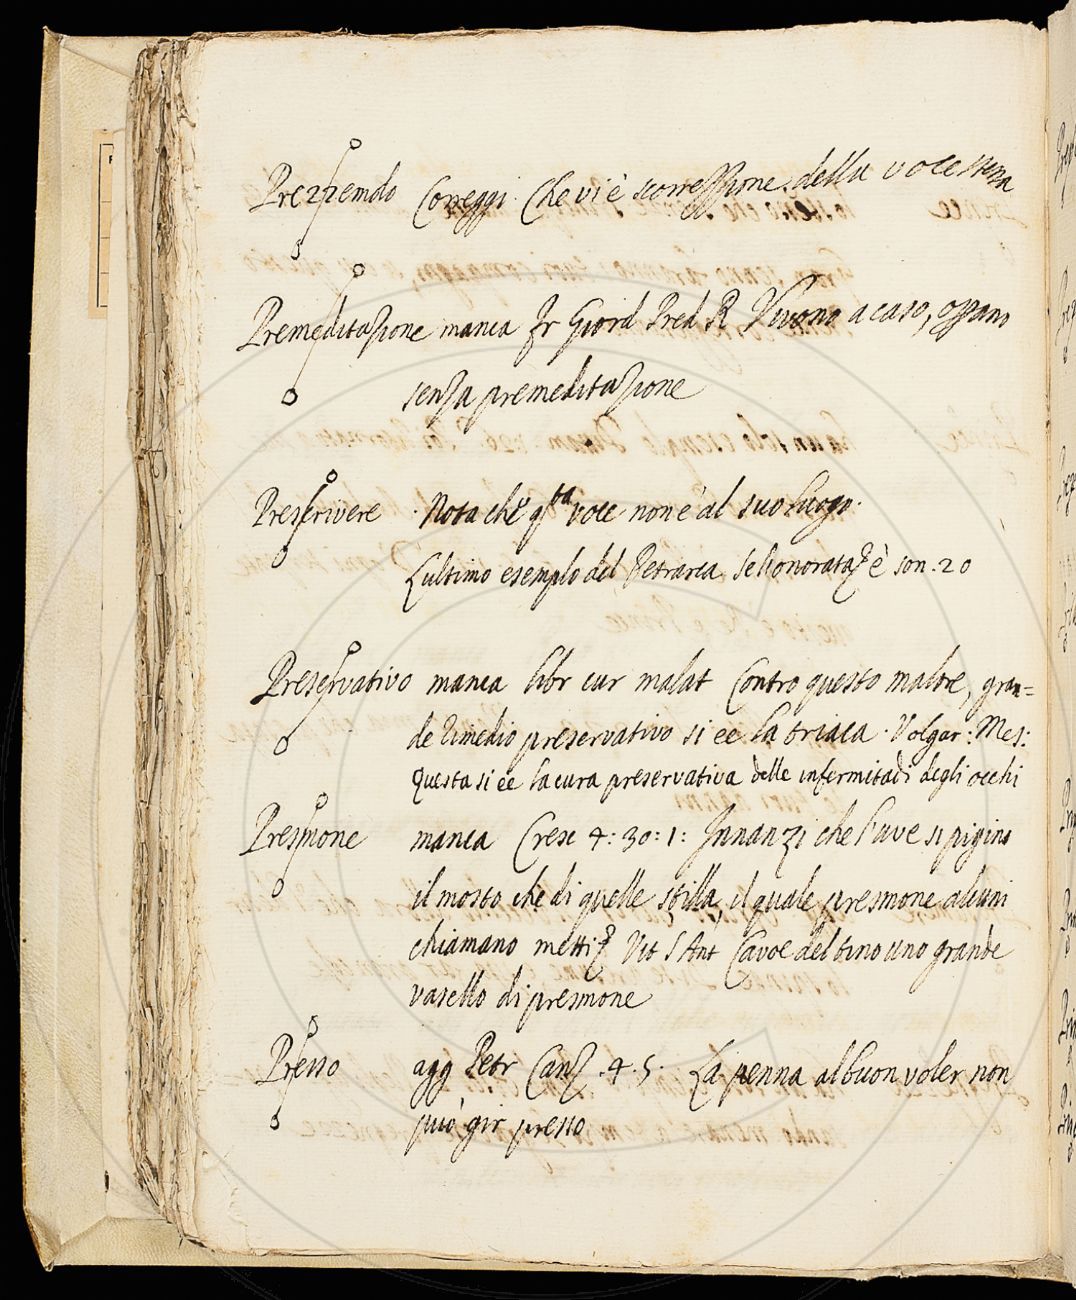 Prezzemolo Correggi. Che vi è scorressione della voce stessa
Premeditazione manca Fr Giord Pred R Vivono a caso, oprano
senza premeditazione
Prescrivere . Nota che q.sta voce non è al suo luogo.
L'ultimo esemplo del Petrarca Se l'honorata è son. 20
Preservativo manca libr cur malat Contro questo malore, gran=
de rimedio preservativo si ee la triaca. Volgar: Mes:
Questa si ee la cura preservativa delle infermitadi degli occhi
Presmone manca Cresc 4: 30: 1: Innanzi che l'uve si pigino
il mosto che di quelle stilla, il quale presmone alcuni
chiamano metti Vit S Ant Cavoe del tino uno grande
vasello di presmone
Presso agg Petr Canz. 4. 5. La penna al buon voler non
può gir presso